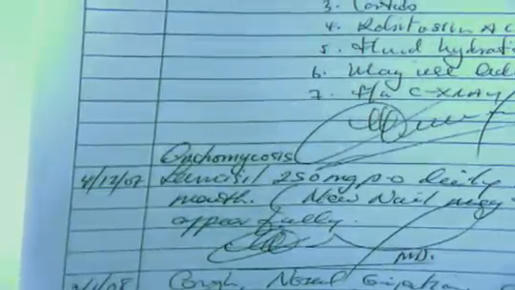 3.
4. Robitussin AC
5. Fluid hydrati
6. May use
7. f/u C-XRAY
Onchomycosis
4/12/07 Lamisil 250mg po daily
month. (New Nail may
appear fully.
MD.
Cough, Nasal